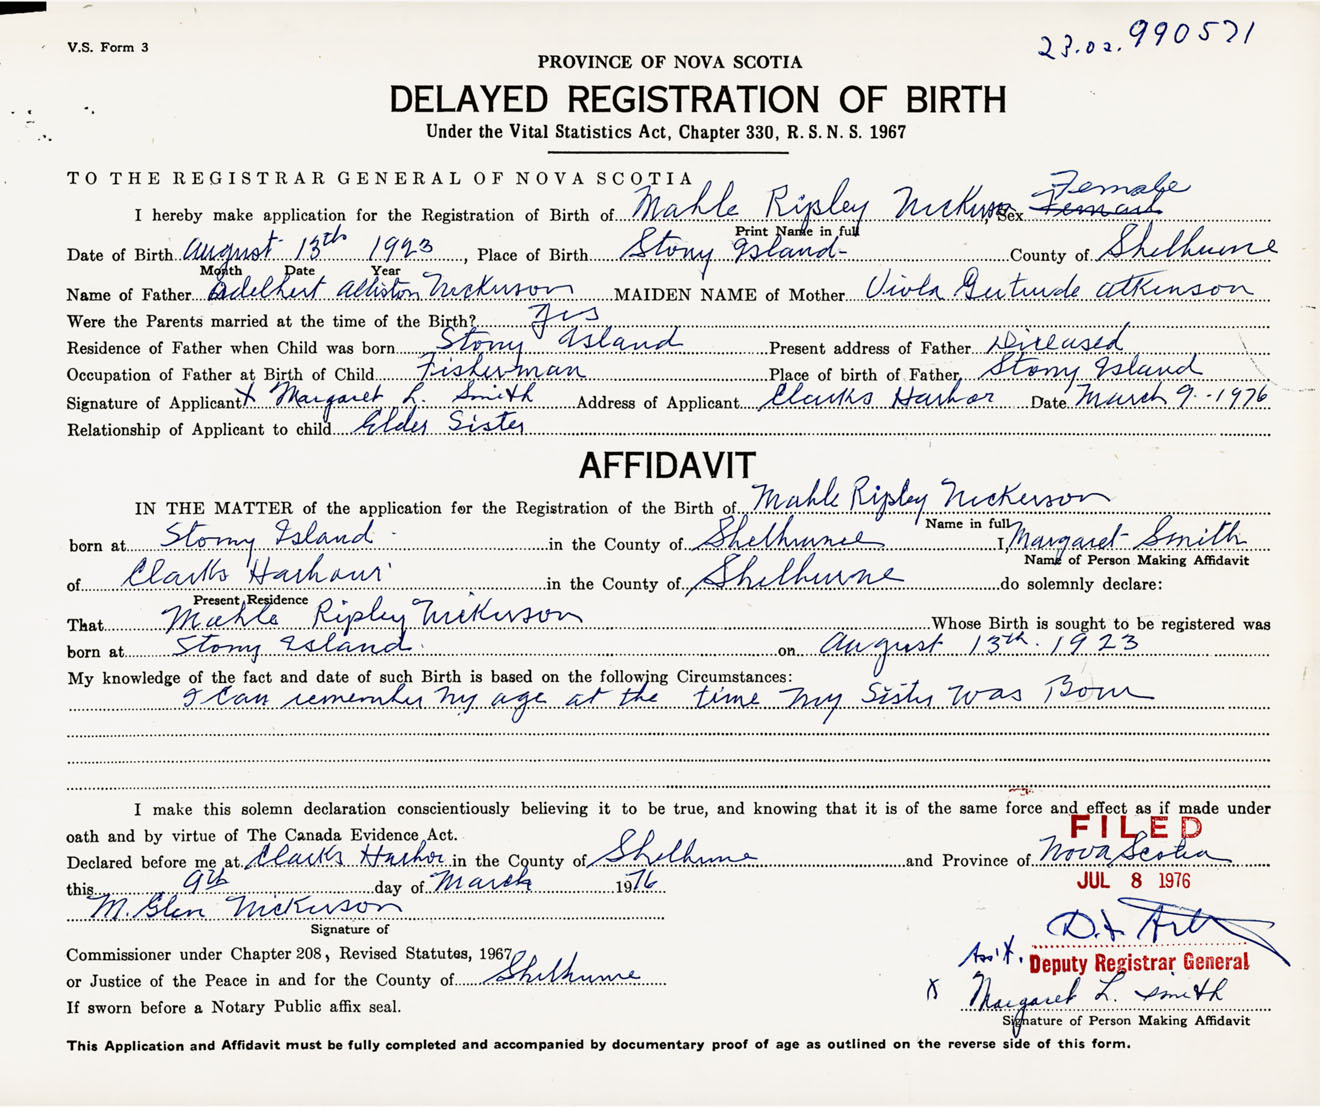 V.S. Form 3
23.02.990571
PROVINCE OF NOVA SCOTIA
DELAYED REGISTRATION OF BIRTH
Under the Vital Statistics Act, Chapter 330, R. S. N. S. 1967
TO THE REGISTRAR GENERAL OF NOVA SCOTIA
Female
I hereby make application for the Registration of Birth of Mahle Ripley Nickerson, Sex
Print Name in full
Date of Birth August 13th 1923, Place of Birth Stony Island- County of Shelburne
Month Date Year
Name of Father Adelbert Alliston Nickerson MAIDEN NAME of Mother Viola Gertrude Atkinson
Were the Parents married at the time of the Birth? Yes
Residence of Father when Child was born Stony Island Present address of Father Diceased
Occupation of Father at Birth of Child Fisherman Place of birth of Father Stony Island
Signature of Applicant X Margaret L. Smith Address of Applicant Clarks Harbor Date March 9--1976
Relationship of Applicant to child Elder Sister
AFFIDAVIT
IN THE MATTER of the application for the Registration of the Birth of Mahle Ripley Nickerson
Name in full
born at Stony Island in the County of Shelburnee I, Margaret Smith
Name of Person Making Affidavit
of Clarks Harbour in the County of Shelburne do solemnly declare:
Present Residence
That Mahle Ripley Nickerson Whose Birth is sought to be registered was
born at Stony Island on August 13th. 1923
My knowledge of the fact and date of such Birth is based on the following Circumstances:
I Can remember my age at the time my Sister was Born
I make this solemn declaration conscientiously believing it to be true, and knowing that it is of the same force and effect as if made under
oath and by virtue of The Canada Evidence Act.
FILED
Declared before me at Clarks Harbor in the County of Shelburne and Province of Nova Scotia
this 9th day of March 1976
JUL 8 1976
M. Glen Nickerson
Signature of
Commissioner under Chapter 208, Revised Statutes, 1967,
Ass't. Deputy Registrar General
or Justice of the Peace in and for the County of Shelburne
X Margaret L. Smith
If sworn before a Notary Public affix seal.
Signature of Person Making Affidavit
This Application and Affidavit must be fully completed and accompanied by documentary proof of age as outlined on the reverse side of this form.